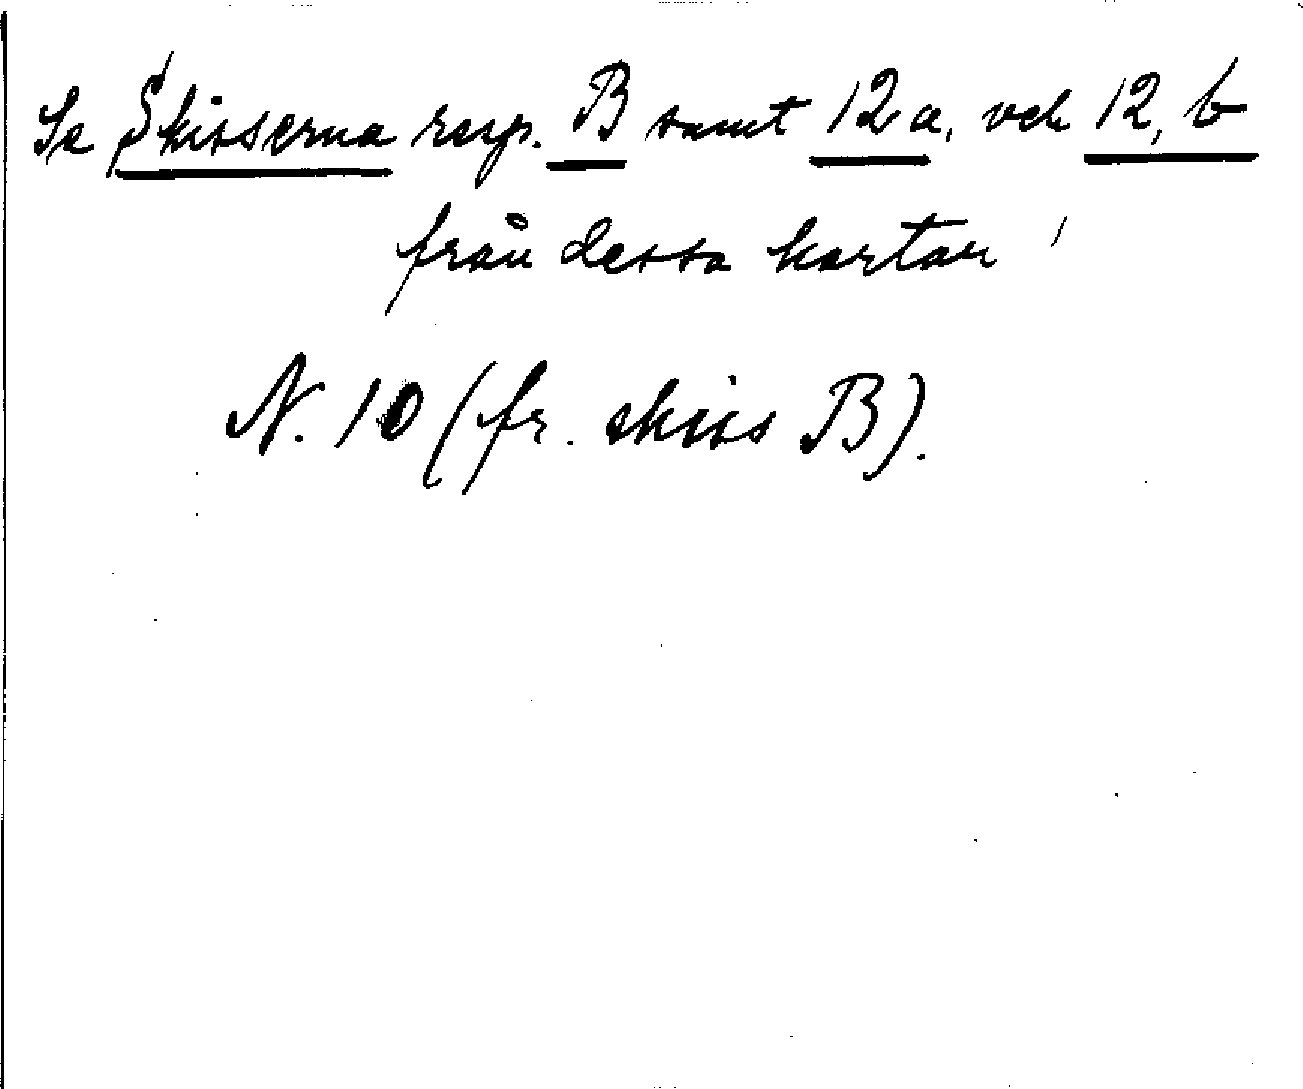 Se Skisserna resp. B samt 12 a, och 12, b
från dessa kartor!
N. 10 (fr. skiss B).